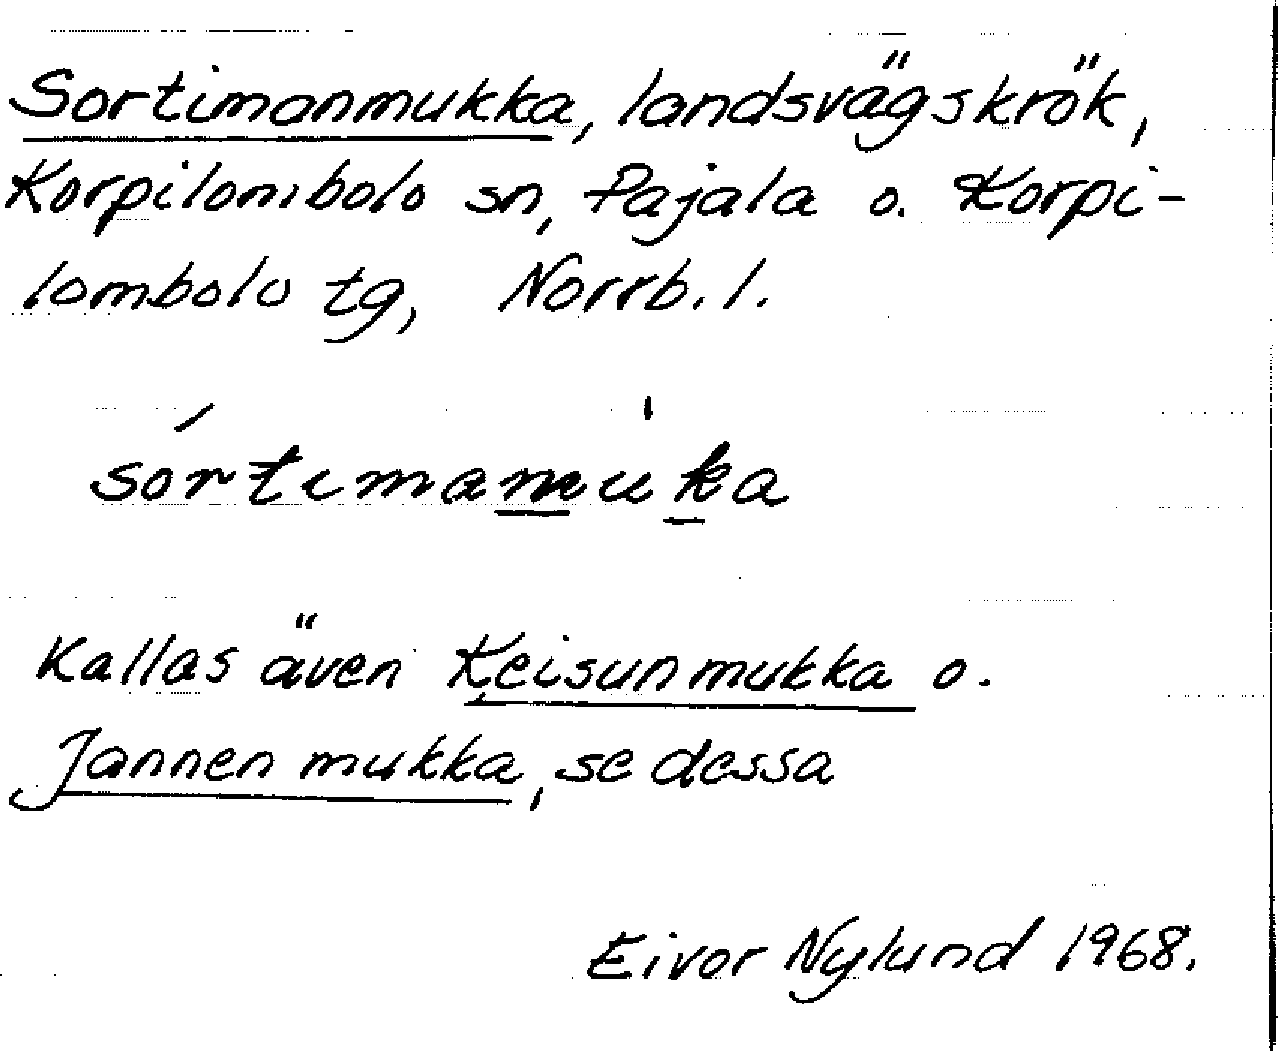 Sortimanmukka, landsvägskrök,
Korpilombolo sn, Pajala o. Korpi-
lombolo tg, Norrb. l.
sórtimamuka
Kallas även Keisunmukka o.
Jannen mukka, se dessa
Eivor Nylund 1968.